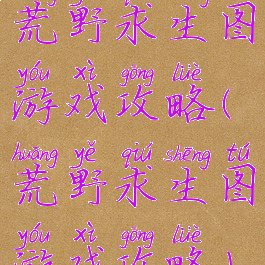 荒野求生图
yóu xì gōng lüè
游戏攻略(
huāng yě qiú shēng tú
荒野求生图
yóu xì gōng lüè
游戏攻略)